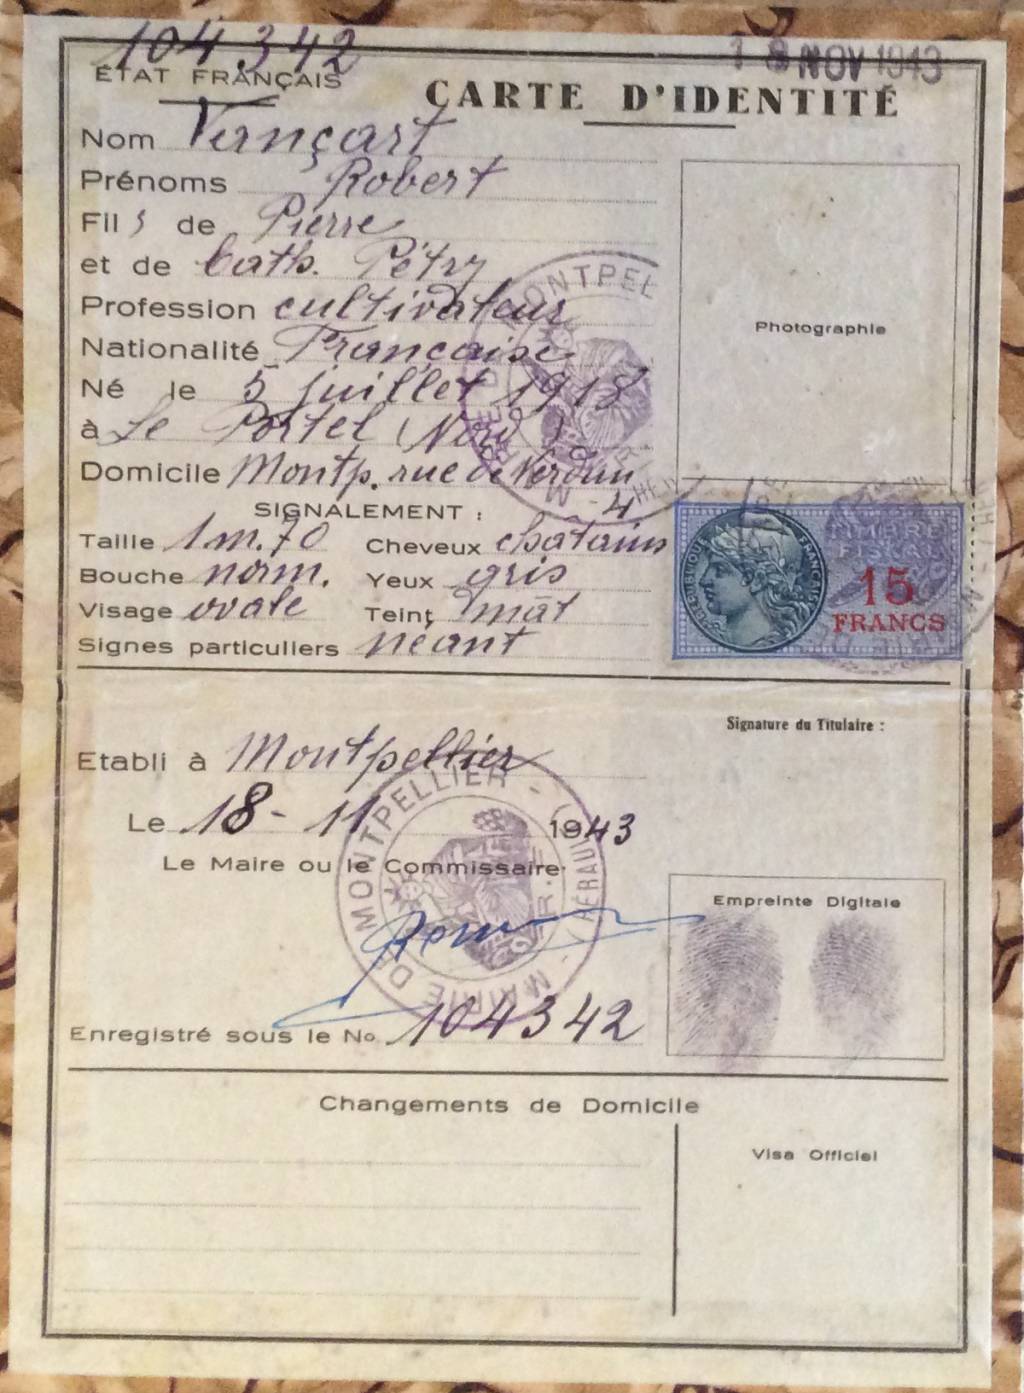 104342
18 NOV 1943
ÉTAT FRANÇAIS
CARTE D'IDENTITÉ
Nom Vançart
Prénoms Robert
Fils de Pierre
et de Cath. Pétry
Profession cultivateur
Nationalité Française
Né le 5 juillet 1918
à Le Portel (Nord)
Domicile Montp. rue de Verdun
4
Photographie
SIGNALEMENT :
Taille 1m.70 Cheveux chatains
Bouche norm. Yeux gris
Visage ovale Teint mât
Signes particuliers néant
RÉPUBLIQUE FRANÇAISE
TIMBRE
FISCAL
15
FRANCS
Signature du Titulaire :
Etabli à Montpellier
Le 18-11 1943
Le Maire ou le Commissaire
MAIRIE DE MONTPELLIER - (HÉRAULT)
Empreinte Digitale
Enregistré sous le No 104342
Changements de Domicile
Visa Officiel